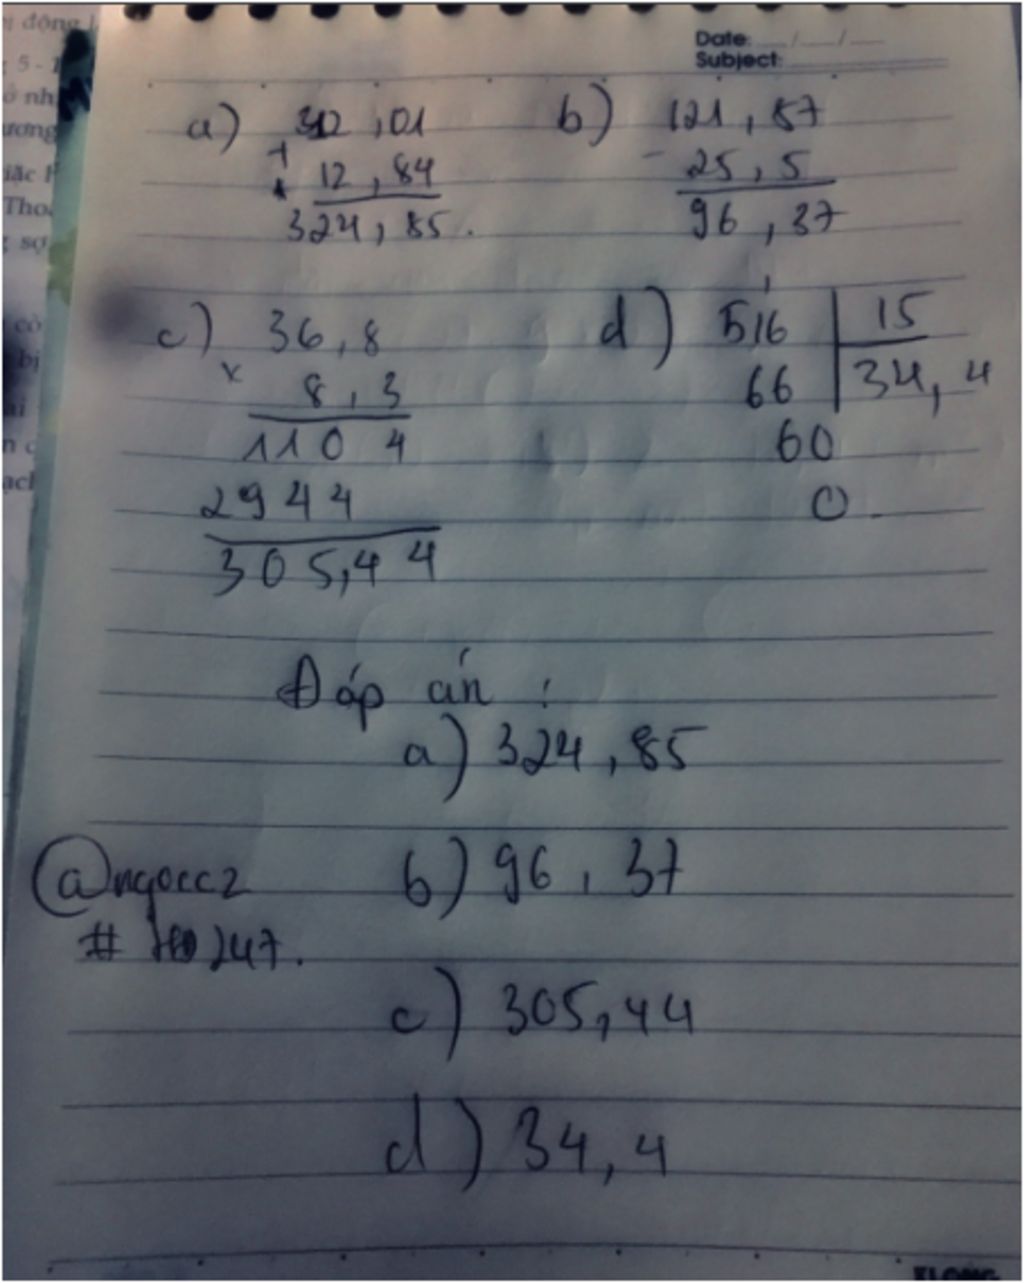 Date: __/__/__
Subject:
a) 312,01
+ 12,84
324,85.
b) 121,87
- 25,5
96,37
c) 36,8
x 8,3
110 4
2944
305,44
d) 516 15
66 34,4
60
0.
Đáp án :
a) 324,85
b) 96,37
@ngocc2
c) 305,44
d) 34,4
5 - 1